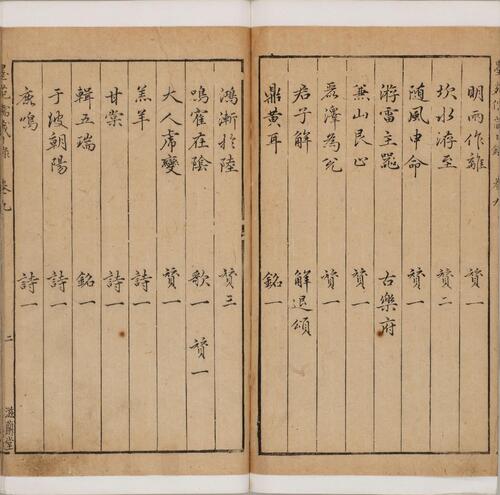 明兩作離 贊一
坎水洊至 贊二
随風申命 贊一
洊雷主鬯 古樂府
兼山艮止 贊一
麗澤為兌 贊一
君子解 解退頌
鼎黃耳 銘一
鴻漸於陸 贊三
鳴隺在陰 歌一 贊一
大人虎變 贊一
羔羊 詩一
甘棠 詩一
輯五瑞 銘一
于彼朝陽 詩一
鹿鳴 詩一
墨苑儒藏錄 卷九 二 滋蘭堂